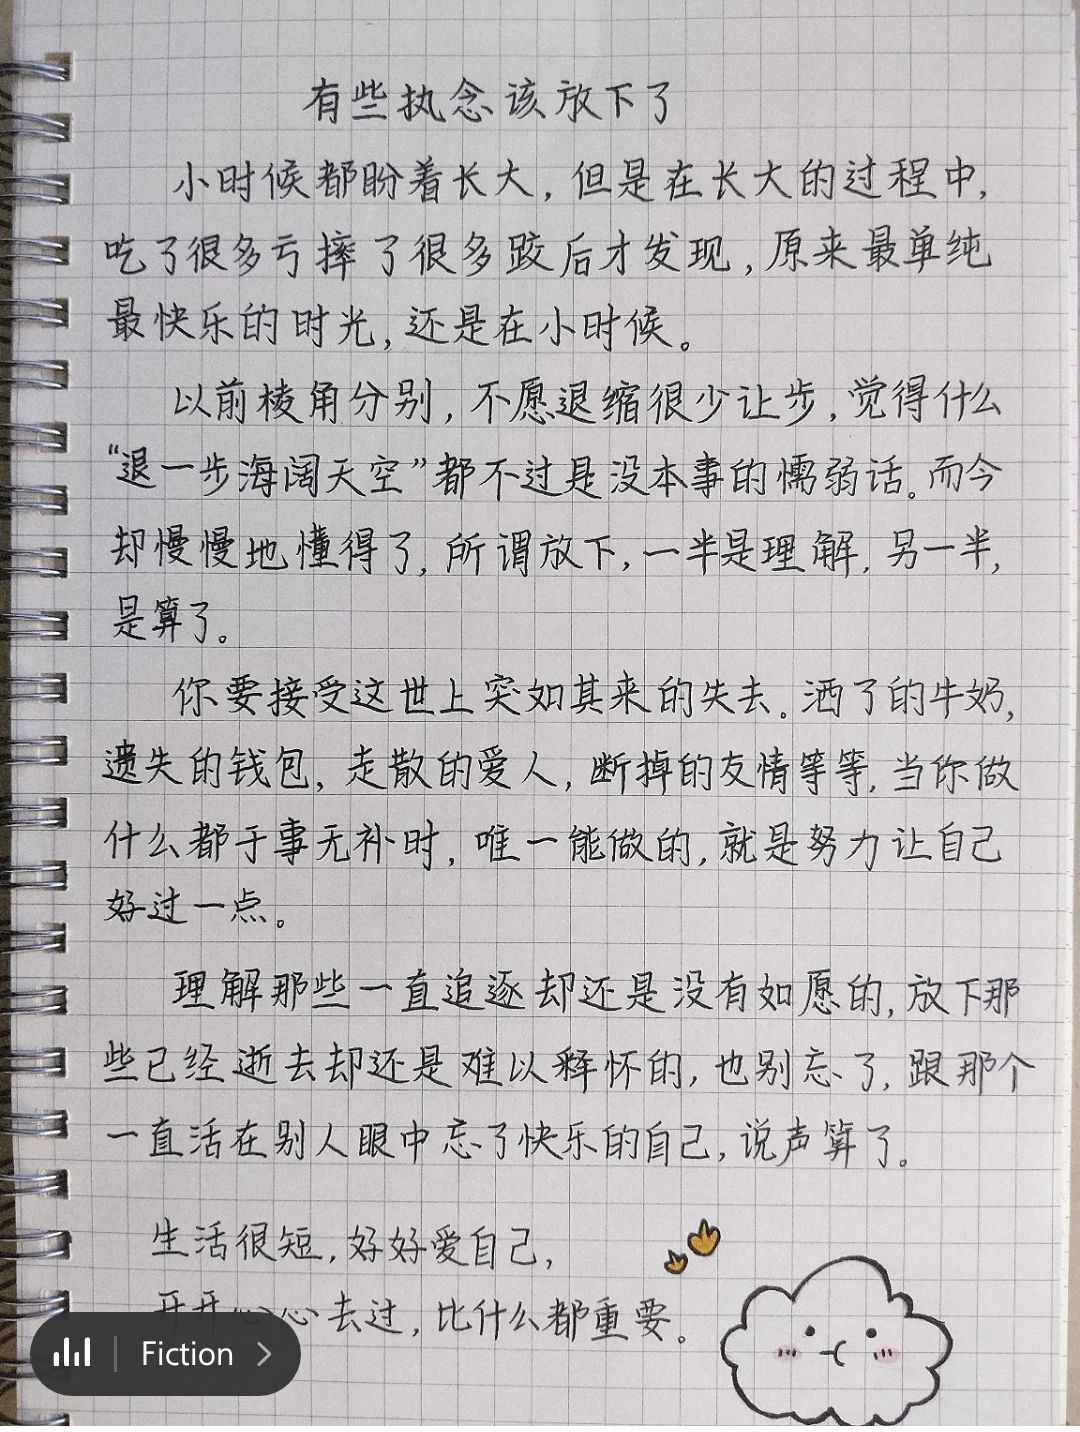 有些执念该放下了
小时候都盼着长大，但是在长大的过程中，
吃了很多亏摔了很多跤后才发现，原来最单纯
最快乐的时光，还是在小时候。
以前棱角分别，不愿退缩很少让步，觉得什么
“退一步海阔天空”都不过是没本事的懦弱话。而今
却慢慢地懂得了，所谓放下，一半是理解，另一半，
是算了。
你要接受这世上突如其来的失去。洒了的牛奶，
遗失的钱包，走散的爱人，断掉的友情等等，当你做
什么都于事无补时，唯一能做的，就是努力让自己
好过一点。
理解那些一直追逐却还是没有如愿的，放下那
些已经逝去却还是难以释怀的，也别忘了，跟那个
一直活在别人眼中忘了快乐的自己，说声算了。
生活很短，好好爱自己，
开开心心去过，比什么都重要。
Fiction